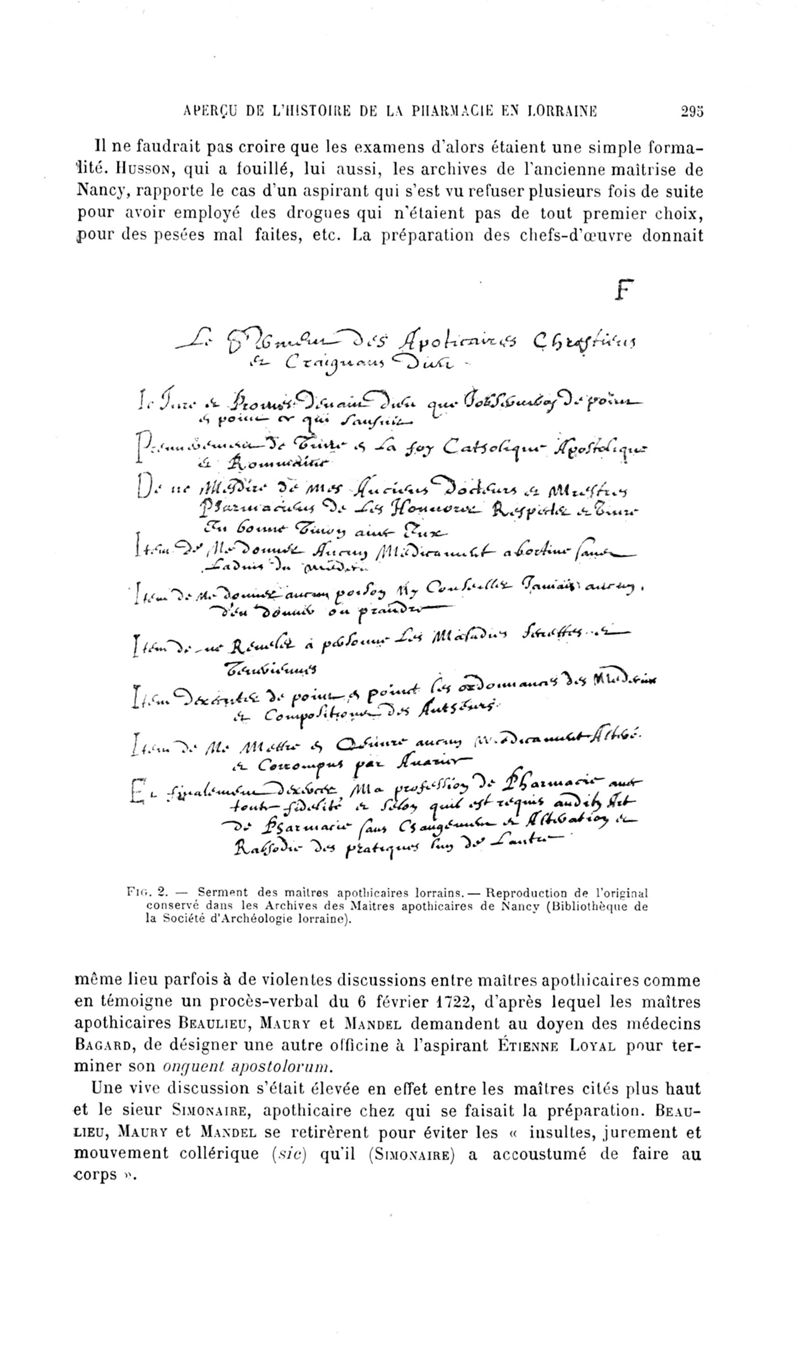 APERÇU DE L'HISTOIRE DE LA PHARMACIE EN LORRAINE 295
Il ne faudrait pas croire que les examens d'alors étaient une simple forma-
lité. HUSSON, qui a fouillé, lui aussi, les archives de l'ancienne maîtrise de
Nancy, rapporte le cas d'un aspirant qui s'est vu refuser plusieurs fois de suite
pour avoir employé des drogues qui n'étaient pas de tout premier choix,
pour des pesées mal faites, etc. La préparation des chefs-d'œuvre donnait
F
Le des Apoticaires Chrestiens
et Craignans Dieu
Je Jure et Promes Devant Dieu que J'observeray de point
en point ce qui s'ensuit
Premierement De Vivre en La foy Catholique Apostolique
et Rommaine
De ne Mesdire de mes Anciens Docteurs et Maistres
Pharmaciens De Les Honnorer Respecter et Vivre
En bonne Union avec Eux
Item De Ne Donner Aucun Medicament abortive sans
L'advis Du Medecin
Item De Ne Donner aucun poison Ny Conseiller Jamais aucun
d'en donner ou prandre
Item De ne Reveler a personne Les Maladies secrettes et
Item D'executer de point en point les ordonnances Des Medecins
et Compositions Des Autheurs
Item De Ne Mettre en Oeuvre aucun Medicament Altéré
et Corrompus par Avarice
Et finalement D'exercer Ma profession De Pharmacie avec
toute fidelité et Selon quil est requis audit Art
De Pharmacie sans Changement et Alteration et
Des pratiques Lun De Lautre
FIG. 2. — Serment des maîtres apothicaires lorrains. — Reproduction de l'original
conservé dans les Archives des Maîtres apothicaires de Nancy (Bibliothèque de
la Société d'Archéologie lorraine).
même lieu parfois à de violentes discussions entre maîtres apothicaires comme
en témoigne un procès-verbal du 6 février 1722, d'après lequel les maîtres
apothicaires BEAULIEU, MAURY et MANDEL demandent au doyen des médecins
BAGARD, de désigner une autre officine à l'aspirant ÉTIENNE LOYAL pour ter-
miner son onguent apostolorum.
Une vive discussion s'était élevée en effet entre les maîtres cités plus haut
et le sieur SIMONAIRE, apothicaire chez qui se faisait la préparation. BEAU-
LIEU, MAURY et MANDEL se retirèrent pour éviter les « insultes, jurement et
mouvement collérique (sic) qu'il (SIMONAIRE) a accoustumé de faire au
corps ».